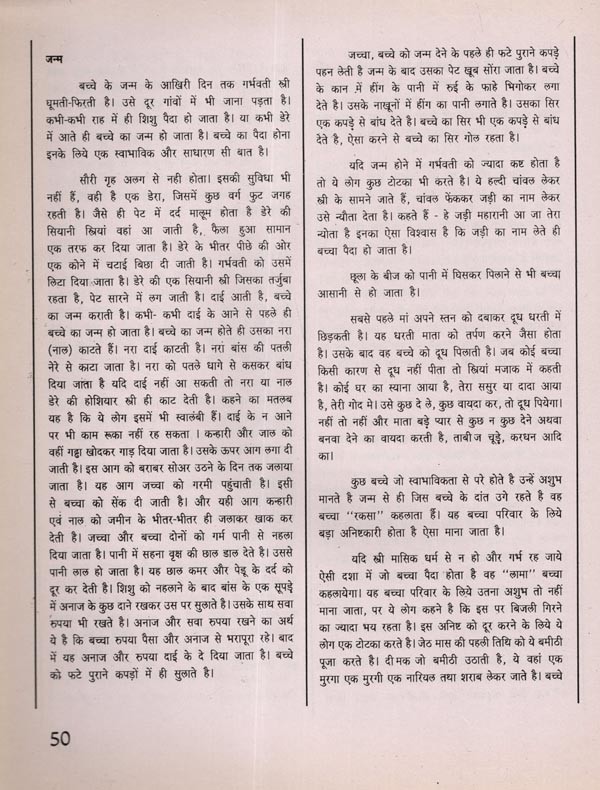 जन्म
बच्चे के जन्म के आखिरी दिन तक गर्भवती स्त्री
घूमती-फिरती है। उसे दूर गांवों में भी जाना पड़ता है।
कभी-कभी राह में ही शिशु पैदा हो जाता है। या कभी डेरे
में आते ही बच्चे का जन्म हो जाता है। बच्चे का पैदा होना
इनके लिये एक स्वाभाविक और साधारण सी बात है।
सौरी गृह अलग से नही होता। इसकी सुविधा भी
नहीं हैं, वही है एक डेरा, जिसमें कुछ वर्ग फुट जगह
रहती है। जैसे ही पेट में दर्द मालूम होता है डेरे की
सियानी स्त्रियां वहां आ जाती है, फैला हुआ सामान
एक तरफ कर दिया जाता है। डेरे के भीतर पीछे की ओर
एक कोने में चटाई बिछा दी जाती है। गर्भवती को उसमें
लिटा दिया जाता है। डेरे की एक सियानी स्त्री जिसका तर्जुबा
रहता है, पेट सारने में लग जाती है। दाई आती है, बच्चे
का जन्म कराती है। कभी- कभी दाई के आने से पहले ही
बच्चे का जन्म हो जाता है। बच्चे का जन्म होते ही उसका नरा
(नाल) काटते हैं। नरा दाई काटती है। नरां बांस की पतली
नेरे से काटा जाता है। नरा को पतले धागे से कसकर बांध
दिया जाता है यदि दाई नहीं आ सकती तो नरा या नाल
डेरे की होशियार स्त्री ही काट देती है। कहने का मतलब
यह है कि ये लोग इसमें भी स्वालंबी हैं। दाई के न आने
पर भी काम रूका नहीं रह सकता । कन्हारी और जाल को
वहीं गढ्ढा खोदकर गाड़ दिया जाता है। उसके ऊपर आग लगा दी
जाती है। इस आग को बराबर सोअर उठने के दिन तक जलाया
जाता है। यह आग जच्चा को गरमी पहुंचाती है। इसी
से बच्चा को सेंक दी जाती है। और यही आग कन्हारी
एवं नाल को जमीन के भीतर-भीतर ही जलाकर खाक कर
देती है। जच्चा और बच्चा दोनों को गर्म पानी से नहला
दिया जाता है। पानी में सहना वृक्ष की छाल डाल देते है। उससे
पानी लाल हो जाता है। यह छाल कमर और पेडू के दर्द को
दूर कर देती है। शिशु को नहलाने के बाद बांस के एक सूपड़े
में अनाज के कुछ दाने रखकर उस पर सुलाते है। उसके साथ सवा
रुपया भी रखते है। अनाज और सवा रुपया रखने का अर्थ
ये है कि बच्चा रुपया पैसा और अनाज से भरापूरा रहे। बाद
में यह अनाज और रुपया दाई के दे दिया जाता है। बच्चे
को फटे पुराने कपड़ों में ही सुलाते है।
जच्चा, बच्चे को जन्म देने के पहले ही फटे पुराने कपड़े
पहन लेती है जन्म के बाद उसका पेट खूब सोंरा जाता है। बच्चे
के कान में हींग के पानी में रुई के फाहे भिगोकर लगा
देते है। उसके नाखूनों में हींग का पानी लगाते है। उसका सिर
एक कपड़े से बांध देते है। बच्चे का सिर भी एक कपड़े से बांध
देते है, ऐसा करने से बच्चे का सिर गोल रहता है।
यदि जन्म होने में गर्भवती को ज्यादा कष्ट होता है
तो ये लोग कुछ टोटका भी करते है। ये हल्दी चांवल लेकर
स्त्री के सामने जाते हैं, चांवल फेंककर जड़ी का नाम लेकर
उसे न्यौता देता है। कहते हैं - हे जड़ी महारानी आ जा तेरा
न्योता है इनका ऐसा विश्वास है कि जड़ी का नाम लेते ही
बच्चा पैदा हो जाता है।
छूला के बीज को पानी में घिसकर पिलाने से भी बच्चा
आसानी से हो जाता है।
सबसे पहले मां अपने स्तन को दबाकर दूध धरती में
छिड़कती है। यह धरती माता को तर्पण करने जैसा होता
है। उसके बाद वह बच्चे को दूध पिलाती है। जब कोई बच्चा
किसी कारण से दूध नहीं पीता तो स्त्रियां मजाक में कहती
है। कोई घर का स्याना आया है, तेरा ससुर या दादा आया
है, तेरी गोद मे। उसे कुछ दे ले, कुछ वायदा कर, तो दूध पियेगा।
नहीं तो नहीं और माता बड़े प्यार से कुछ न कुछ देने अथवा
बनवा देने का वायदा करती है, ताबीज चूड़े, करधन आदि
का।
कुछ बच्चे जो स्वाभाविकता से परे होते है उन्हें अशुभ
मानते है जन्म से ही जिस बच्चे के दांत उगे रहते है वह
बच्चा "रकसा" कहलाता हैं। यह बच्चा परिवार के लिये
बड़ा अनिष्टकारी होता है ऐसा माना जाता है।
यदि स्त्री मासिक धर्म से न हो और गर्भ रह जाये
ऐसी दशा में जो बच्चा पैदा होता है वह "लामा" बच्चा
कहलायेगा। यह बच्चा परिवार के लिये उतना अशुभ तो नहीं
माना जाता, पर ये लोग कहने है कि इस पर बिजली गिरने
का ज्यादा भय रहता है। इस अनिष्ट को दूर करने के लिये ये
लोग एक टोटका करते है। जेठ मास की पहली तिथि को ये बमीठी
पूजा करते है। दीमक जो बमीठी उठाती है, ये वहां एक
मुरगा एक मुरगी एक नारियल तथा शराब लेकर जाते है। बच्चे
50